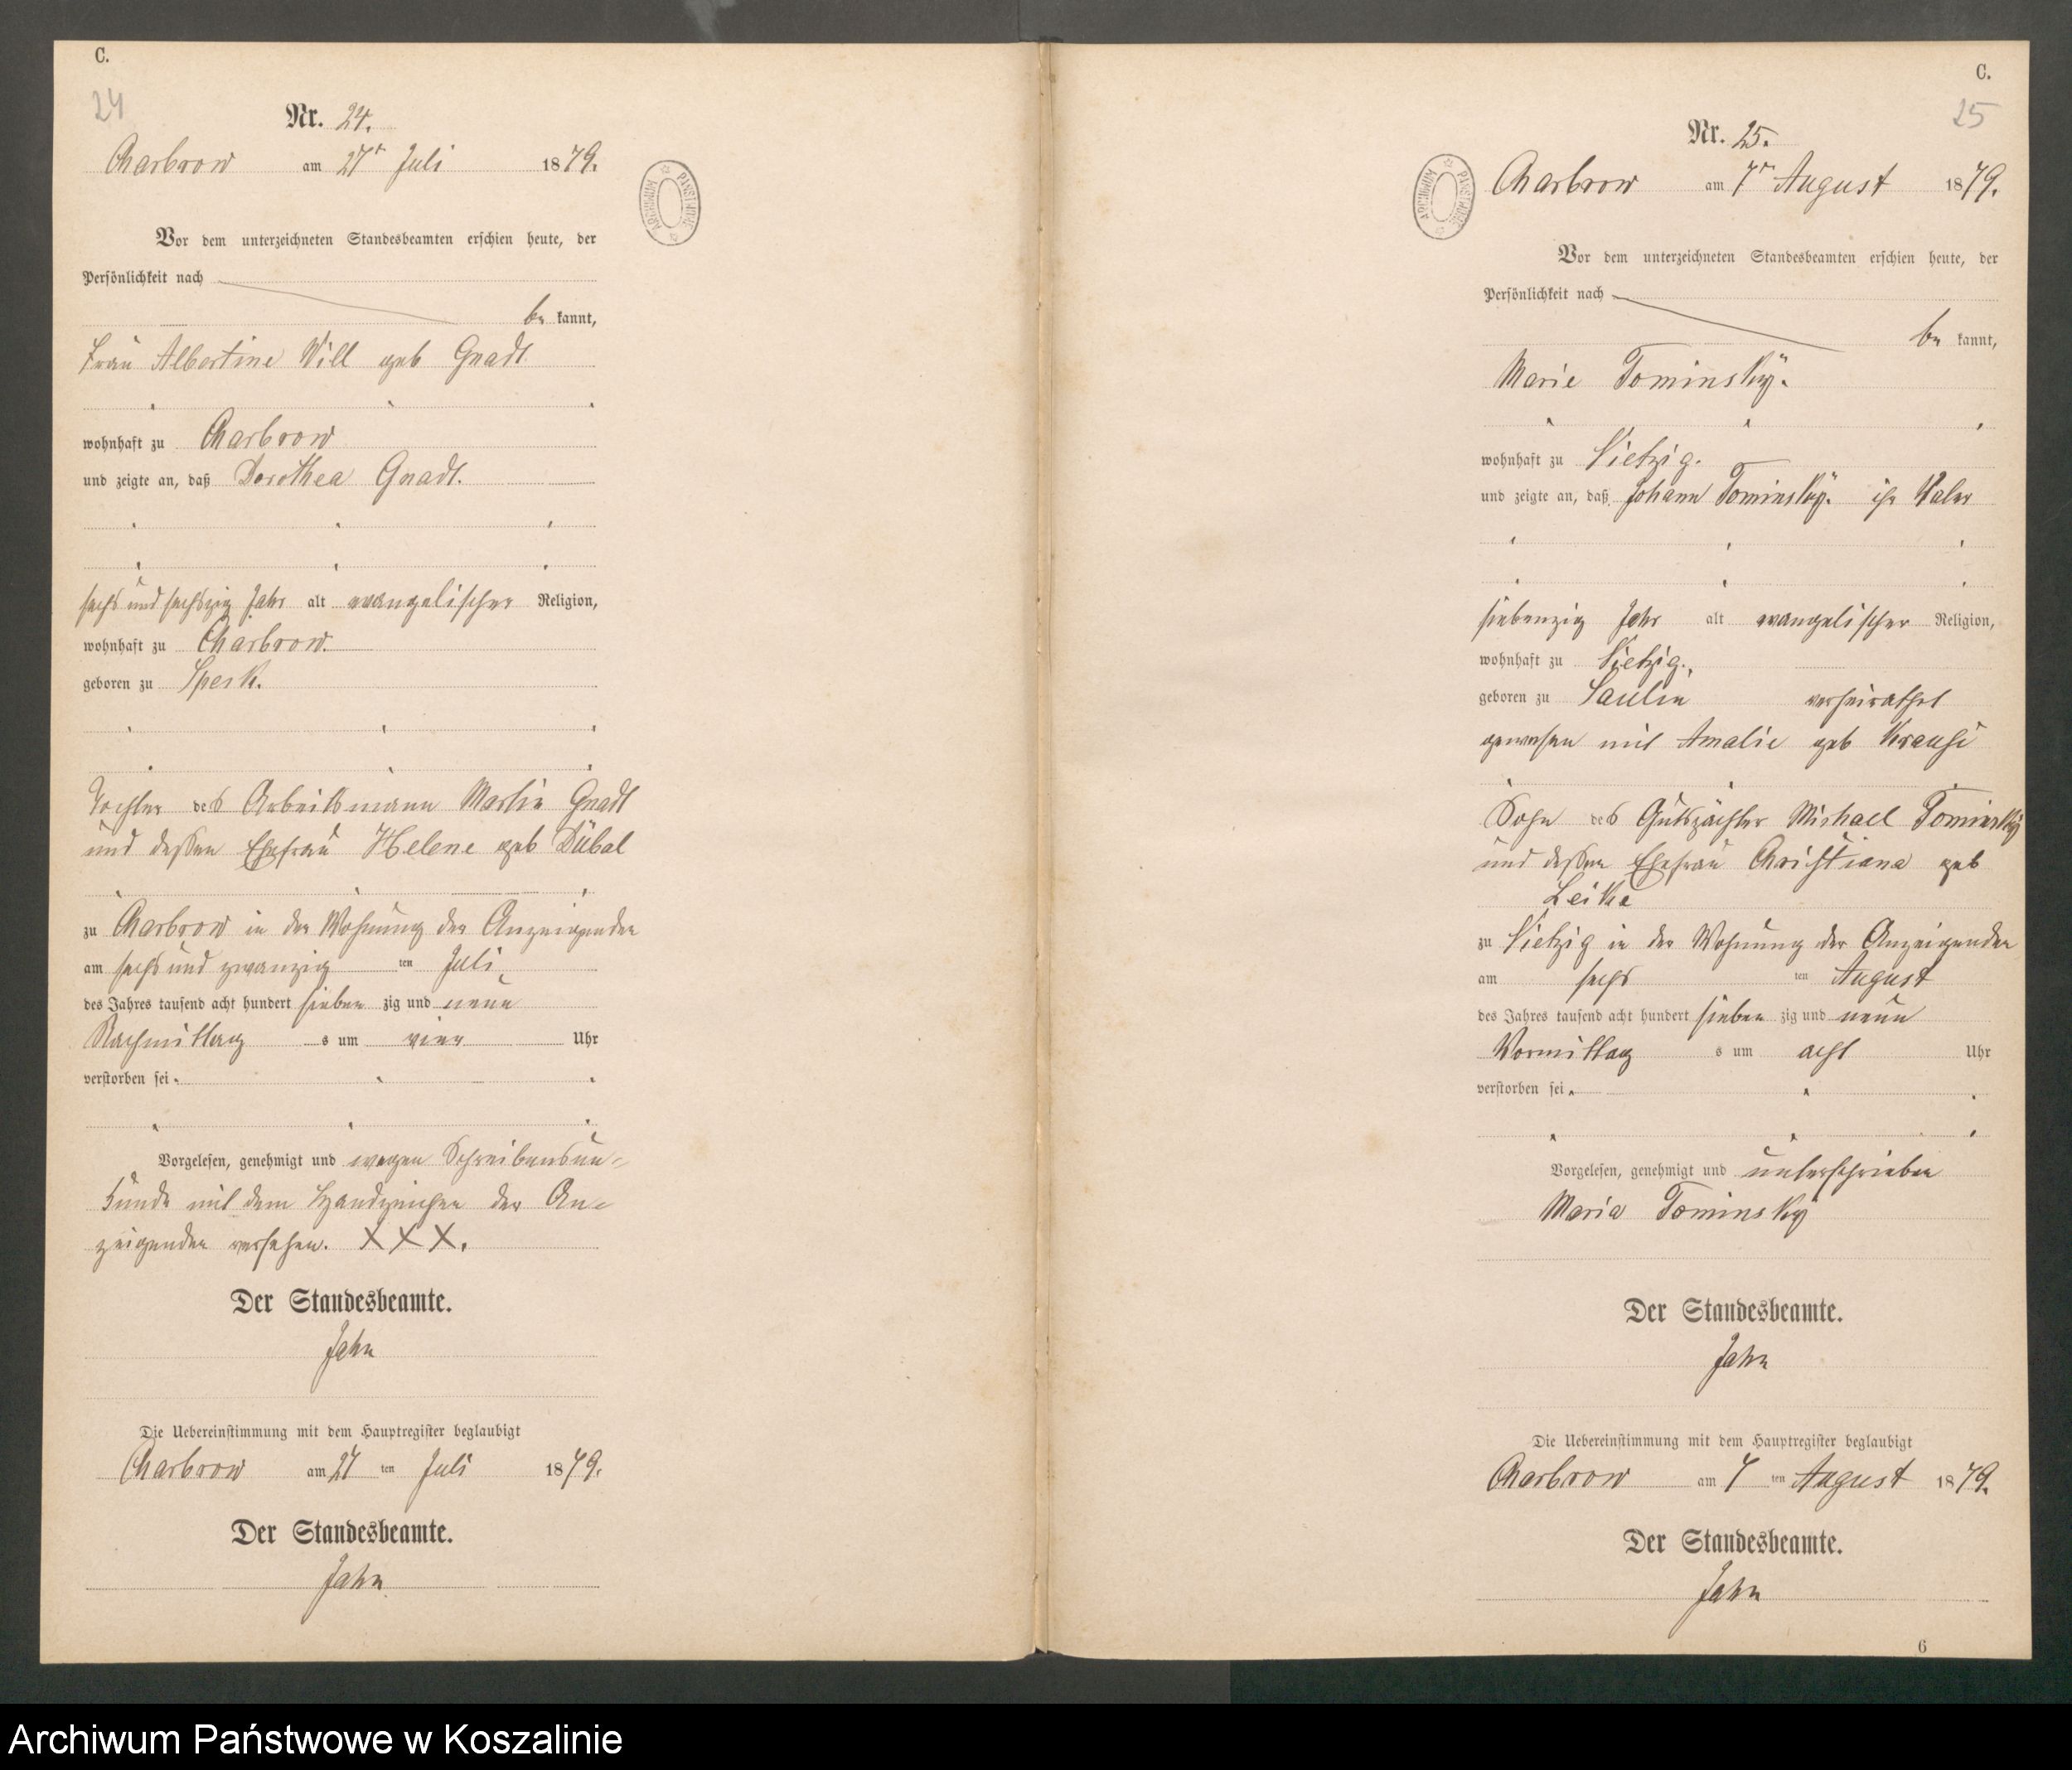 C.
24
Nr. 24.
Charbrow am 27t Juli 1879.
ARCHIWUM PAŃSTWOWE
Vor dem unterzeichneten Standesbeamten erschien heute, der
Persönlichkeit nach
be kannt,
Frau Albertine Will geb Gnadt
wohnhaft zu Charbrow
und zeigte an, daß Dorothea Gnadt.
sechs und sechszig Jahr alt evangelischer Religion,
wohnhaft zu Charbrow.
geboren zu Speck.
Tochter des Arbeitsmann Martin Gnadt
und deßen Ehefrau Helene geb Dübal
zu Charbrow in der Wohnung der Anzeigenden
am sechs und zwanzig ten Juli
des Jahres tausend acht hundert sieben zig und neun
Nachmittag s um vier Uhr
verstorben sei
Vorgelesen, genehmigt und wegen Schreibensun-
kunde mit dem Handzeichen der An-
zeigenden versehen. XXX.
Der Standesbeamte.
Jahn
Die Uebereinstimmung mit dem Hauptregister beglaubigt
Charbrow am 27 ten Juli 1879.
Der Standesbeamte.
Jahn
C.
25
Nr. 25.
Charbrow am 7tn August 1879.
ARCHIWUM PAŃSTWOWE
Vor dem unterzeichneten Standesbeamten erschien heute, der
Persönlichkeit nach
be kannt,
Marie Tominsky.
wohnhaft zu Vietzig.
und zeigte an, daß Johann Tominsky. ihr Vater
siebenzig Jahr alt evangelischer Religion,
wohnhaft zu Vietzig.
geboren zu Saulin verheirathet
gewesen mit Amalie geb Krause
Sohn des Gutspächter Michael Tominsky
und deßen Ehefrau Christiana geb
Leike
zu Vietzig in der Wohnung der Anzeigenden
am sechs ten August
des Jahres tausend acht hundert sieben zig und neun
Vormittag s um acht Uhr
verstorben sei
Vorgelesen, genehmigt und unterschrieben
Maria Tominsky
Der Standesbeamte.
Jahn
Die Uebereinstimmung mit dem Hauptregister beglaubigt
Charbrow am 7 ten August 1879.
Der Standesbeamte.
Jahn
6
Archiwum Państwowe w Koszalinie